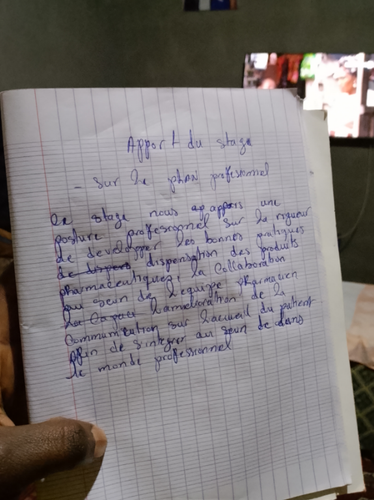 Apport du stage
- Sur le plan profesionnel
le stage nous apporte une
posture professionnel sur la rigueur
de developper les bonnes pratiques
dispensation des produits
pharmaceutiques, la collaboration
au sein de l'equipe pharmacien
l'amelioration de la
communication sur l'accueil du patient
afin de s'integrer au sein de dans
le monde professionnel